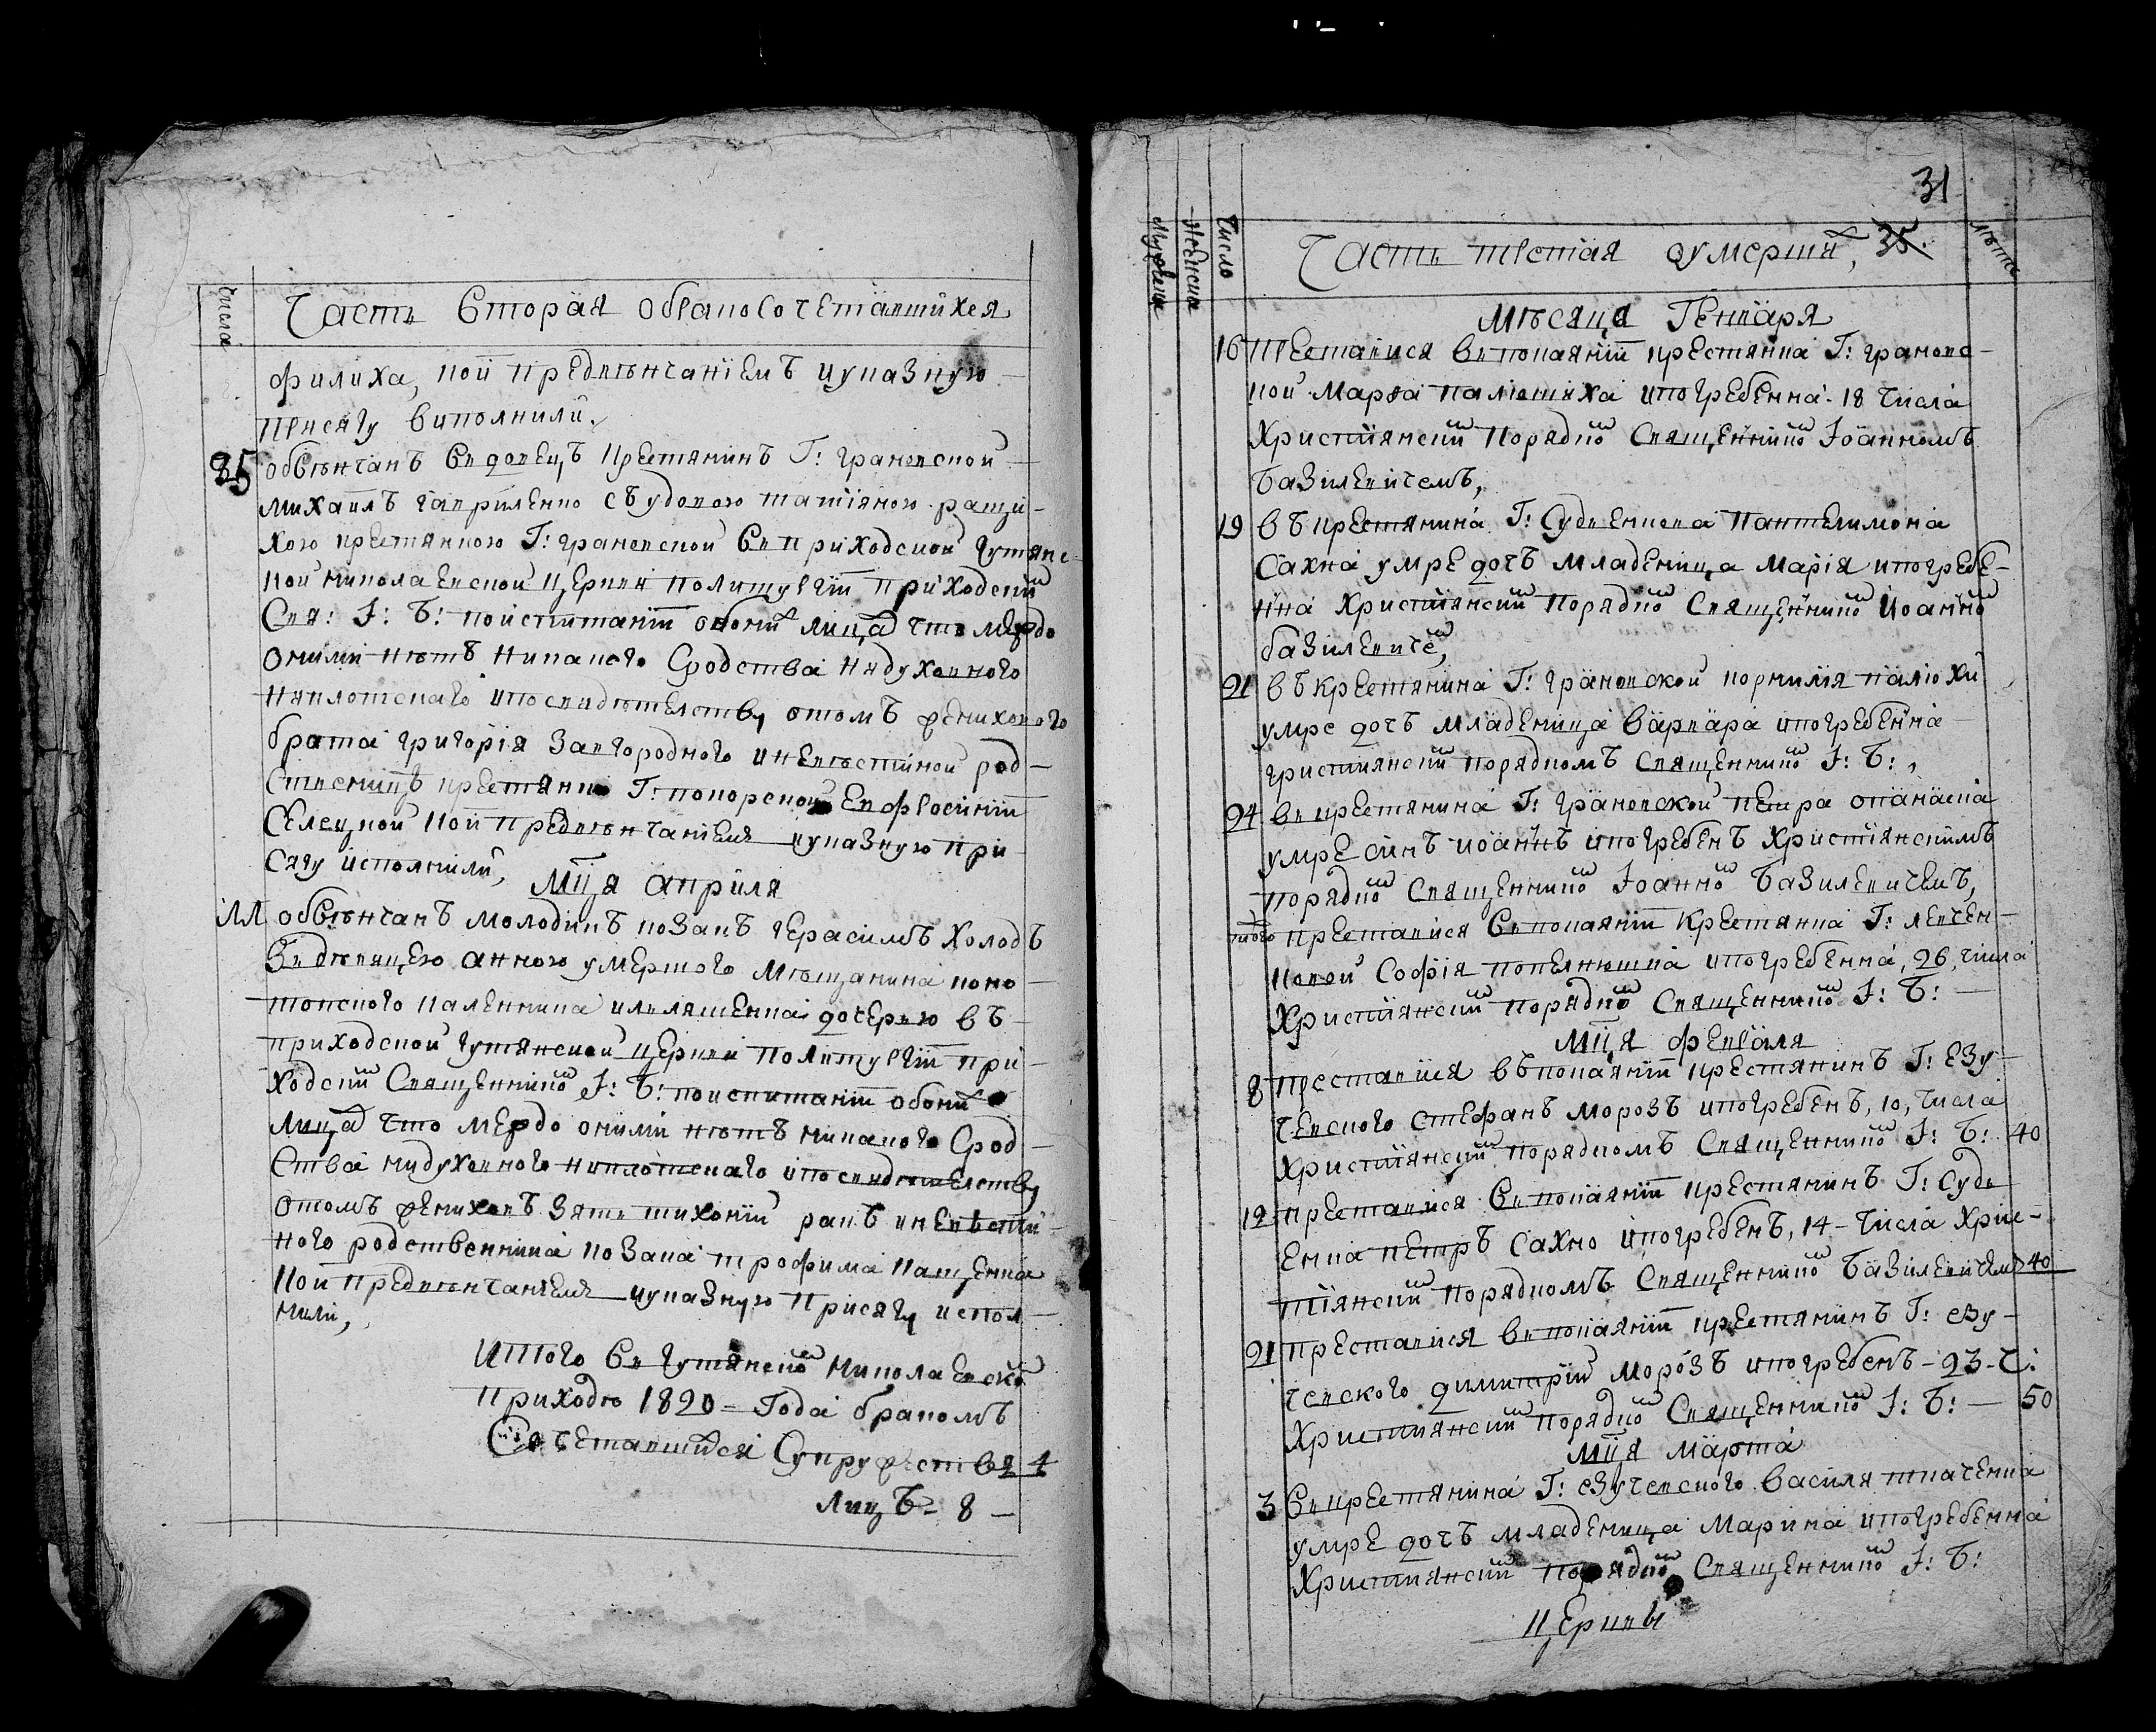 числа
Часть Вторая о бракосочетавшихся
филиха, кои предвѣнчаніемъ и указную
присягу виполнили,
25
обвѣнчанъ вдовецъ крестянинъ Г: грановской
михаилъ гавриленко съ удовою татіяною ращи-
хою крестянкою Г: грановской в приходской гутянс-
кой николаевской церкви по литургіи приходскій
Свя: І: Б: по испитаніи обоих лицъ что междо
оними нѣтъ никакого Сродства ни духовного
ни плотскаго и по свидѣтелству о томъ жениховаго
брата григорія завгородного и невѣстиной род-
ственницѣ крестянки Г: покорской евфросиніи
Селецкой кои предвѣнчаніемъ и указную при-
сягу исполнили,
Мця априля
обвѣнчанъ молодикъ козакъ герасимъ Холодъ
З дѣвицею анною умершого мѣщанина коно-
топского
дочерью въ
приходской гутянской церкви по литургіи при-
ходскій Священнико І: Б: по испитаніи обоих
Лицъ что междо оними нѣтъ никакого Срод-
Ства ни духовного ни плотскаго и по свидѣтелству
о томъ жениховъ зять тихоній ракъ и невѣсти-
ного родственника козака трофима пащенка
Кои предвѣнчаніемъ и указную присягу испол-
нили,
Итого в гутянско николаевско
приходѣ 1820 - Года бракомъ
Сочетавшихся Супружествъ 4
Лицъ - 8 -
31
Мужеска
Женска
Число
Часть третая о умерших, 35.
лѣта
Мѣсяца Генваря
16 преставися в покаяніи крестянка Г: грановс-
кой Марѳа палютиха и погребенна 18 числа
Христіянски порядко Священнико Іоанномъ
Базилевичемъ,
19 въ крестянина Г: Судіенкова Пантелимона
Сахна умре дочь младеница Марія и погребе-
нна Христіянски порядко Священнико Иоанно
базилевиче,
21 въ крестянина Г: грановской корнилія палюхи
умре дочь младеница варвара и погребенна
христіянски порядкомъ Священнико І: Б:,
24 в крестянина Г: грановской петра опанаска
умре синъ иоаннъ и погребенъ Христіянскимъ
порядко Священнико Іоанно Базилевичемъ,
того преставися в покаяніи Крестянка Г: левчен-
ковой Софія попелнюшка и погребенна, 26, числа
Христіянски порядко Священнико І: Б: —
Мця февраля
8 преставися въ покаяніи крестянинъ Г: езу-
чевского Стефанъ морозъ и погребенъ, 10, числа
Христіянски порядкомъ Священнико І: Б: 40
12 преставися в покаяніи крестянинъ Г: Суди-
енка петръ Сахно и погребенъ, 14 - числа Хрис-
тіянски порядкомъ Священнико Базилевичемъ 40
21 преставися в покаяніи крестянинъ Г: езу-
чевского димитрій морозъ и погребенъ - 23 - ч:
Христіянски порядко Священнико І: Б: — 50
Мця марта
3 в крестянина Г: езучевского василя ткаченка
умре дочь младеница Марина и погребенна
Христіянски порядко Священнико І: Б:
церкви